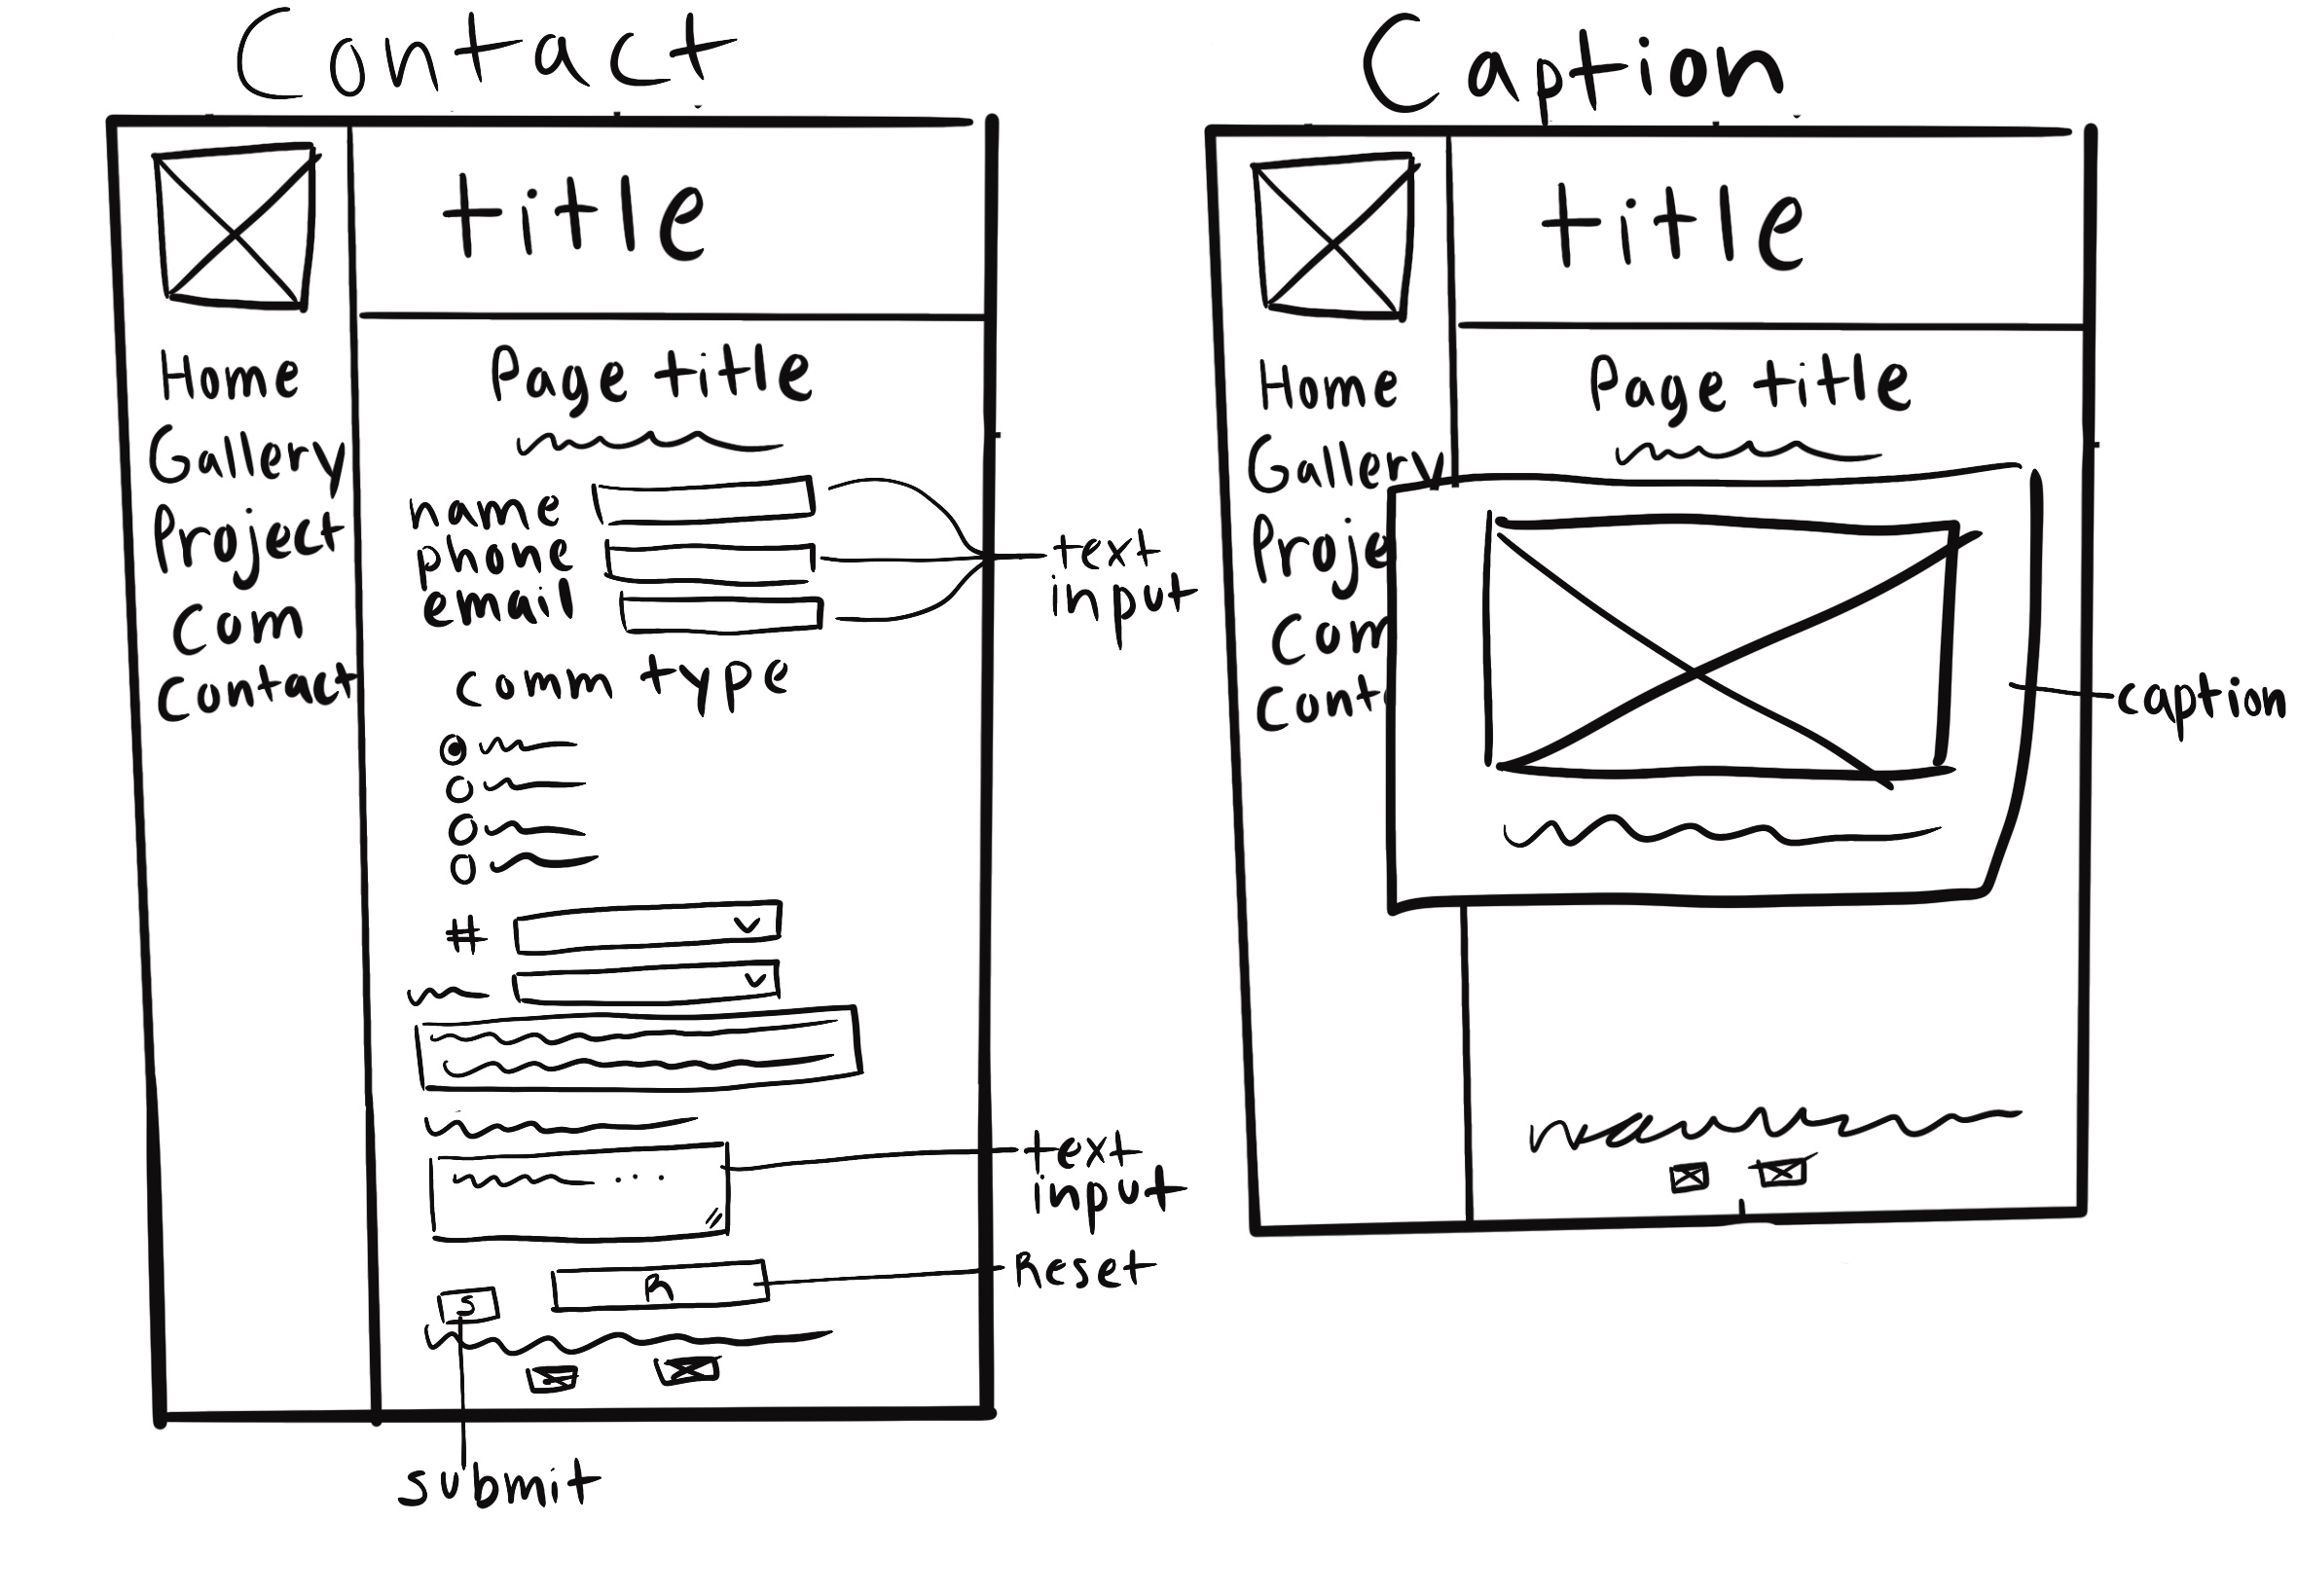 Contact
title
Home
Gallery
Project
Com
Contact
Page title
name
phone
email
text
input
comm type
#
text
input
R
Reset
S
submit
Caption
title
Home
Gallery
Proje
Com
Cont
Page title
caption